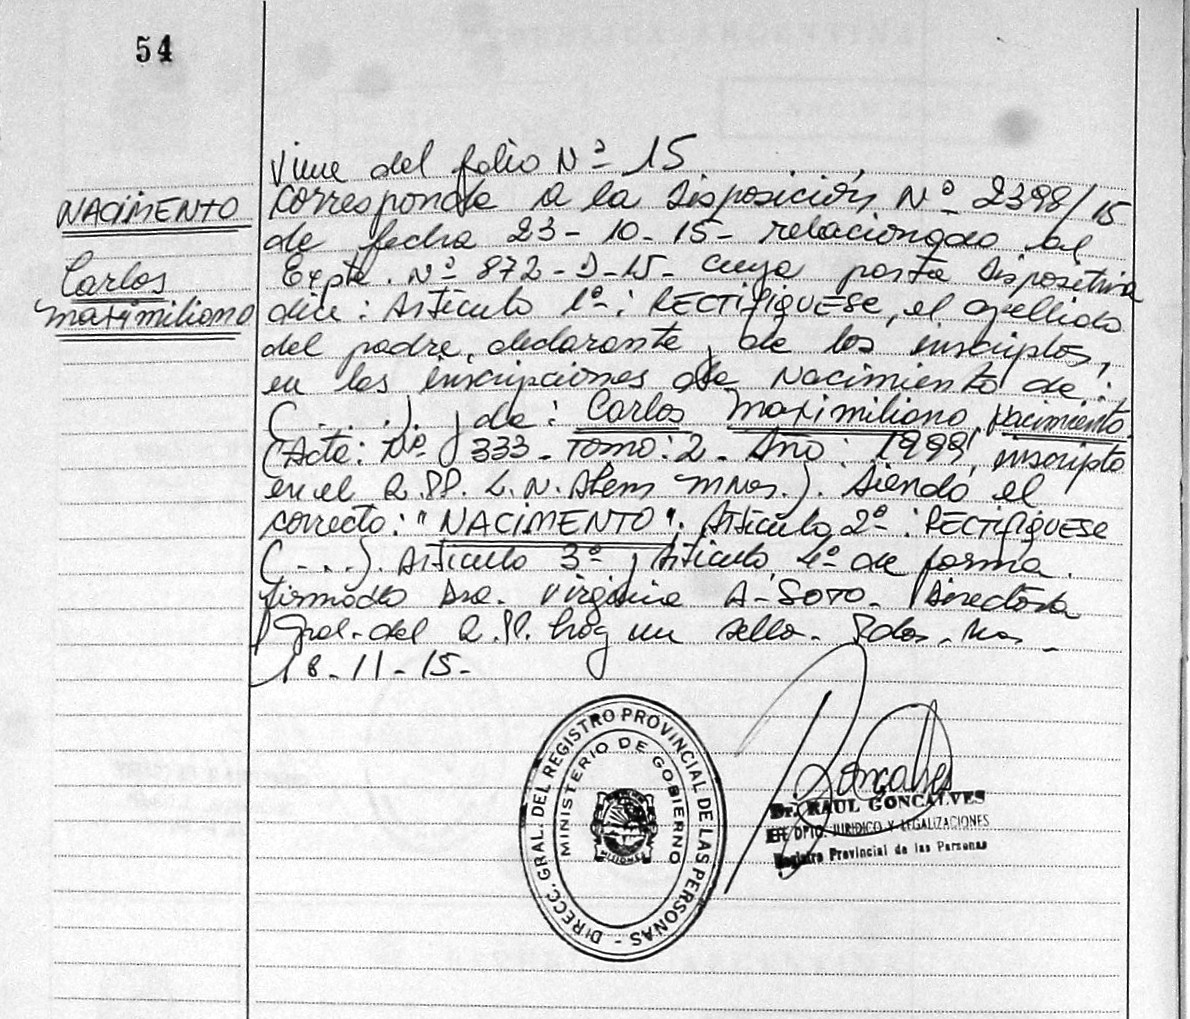 54
NACIMENTO
Carlos
Maximiliano
Viene del folio Nº 15
Corresponde a la Disposición Nº 2398/15
de fecha 23-10-15- relacionado al
Expte. Nº 872-D-15- cuya parte dispositiva
dice: Artículo 1º: RECTIFIQUESE, el apellido
del padre, declarante, de los inscriptos,
en las inscripciones de Nacimiento de:
(....), de: Carlos Maximiliano, Nacimiento
(Acta: Nº 333- Tomo: 2- Año: 1999, inscripto
en el R.PP. L.N. Alem Mnes.). Siendo el
correcto: "NACIMENTO". Artículo 2º: RECTIFIQUESE
(...). Artículo 3º, Artículo 4º de forma.
firmado Dra. Virginia A. SOTO- Directora
Gral. del R.P. hay un sello- Pdas. Mnes
18-11-15-
DIRECC. GRAL. DEL REGISTRO PROVINCIAL DE LAS PERSONAS -
MINISTERIO DE GOBIERNO
MISIONES
Goncalves
Dr. RAUL GONCALVES
DPTO. JURIDICO Y LEGALIZACIONES
Registro Provincial de las Personas